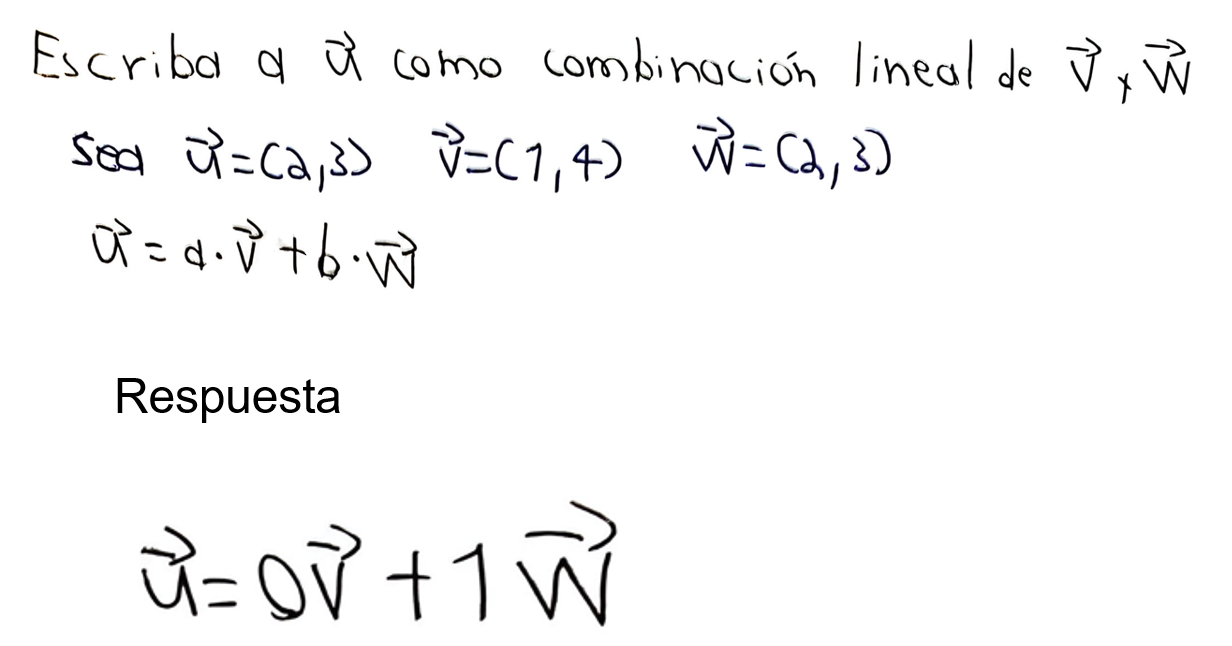 Escriba a u⃗ como combinación lineal de v⃗ y w⃗
sea u⃗=(2,3) v⃗=(1,4) w⃗=(2,3)
u⃗ = a·v⃗ + b·w⃗
Respuesta
u⃗ = 0v⃗ + 1w⃗